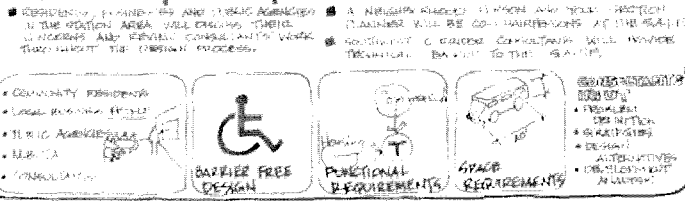 RESIDENTS, BUSINESSES AND PUBLIC AGENCIES
IN THE STATION AREA WILL DISCUSS THEIR
CONCERNS AND REVIEW CONSULTANTS' WORK
THROUGHOUT THE DESIGN PROCESS.
A NEIGHBORHOOD PERSON AND SECTION
PLANNER WILL BE CO-CHAIRPERSONS AT THE
SOUTHWEST CORRIDOR CONSULTANTS WILL PROVIDE
TECHNICAL TO THE
• COMMUNITY RESIDENTS
• LOCAL BUSINESS PEOPLE
• PUBLIC AGENCIES
• M.B.T.A
• CONSULTANTS
BARRIER FREE
DESIGN
Commercial
Housing
T
FUNCTIONAL
REQUIREMENTS
SPACE
REQUIREMENTS
CONSULTANTS
INPUT
• PROBLEM
DEFINITION
• DESIGN
ALTERNATIVES
• DEVELOPMENT
ANALYSIS